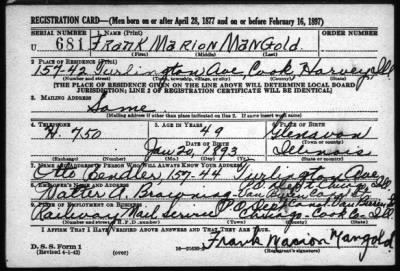 REGISTRATION CARD—(Men born on or after April 28, 1877 and on or before February 16, 1897)
SERIAL NUMBER 1. NAME (Print) ORDER NUMBER
U 681 FRANK MARION MANGOLD.
(First) (Middle) (Last)
2. PLACE OF RESIDENCE (Print)
157-42 Turlington Ave, Cook, Harvey, Ill
(Number and street) (Town, township, village, or city) (County) (State)
[THE PLACE OF RESIDENCE GIVEN ON THE LINE ABOVE WILL DETERMINE LOCAL BOARD
JURISDICTION; LINE 2 OF REGISTRATION CERTIFICATE WILL BE IDENTICAL]
3. MAILING ADDRESS
Same.
[Mailing address if other than place indicated on line 2. If same insert word same]
4. TELEPHONE 5. AGE IN YEARS 6. PLACE OF BIRTH
H. 750 49 Glenavon
DATE OF BIRTH (Town or county)
Jan 20, 1893 Illinois
(Exchange) (Number) (Mo.) (Day) (Yr.) (State or country)
7. NAME AND ADDRESS OF PERSON WHO WILL ALWAYS KNOW YOUR ADDRESS
Otto Bendler, 157-44 Turlington Ave
8. EMPLOYER'S NAME AND ADDRESS
Walter A
9. PLACE OF EMPLOYMENT OR BUSINESS
Railway Mail Service Chicago - Cook Co Ill
(Number and street or R. F. D. number) (Town) (County) (State)
I AFFIRM THAT I HAVE VERIFIED ABOVE ANSWERS AND THAT THEY ARE TRUE.
D. S. S. Form 1
(Revised 4-1-42) Frank Marion Mangold
(Registrant's signature)